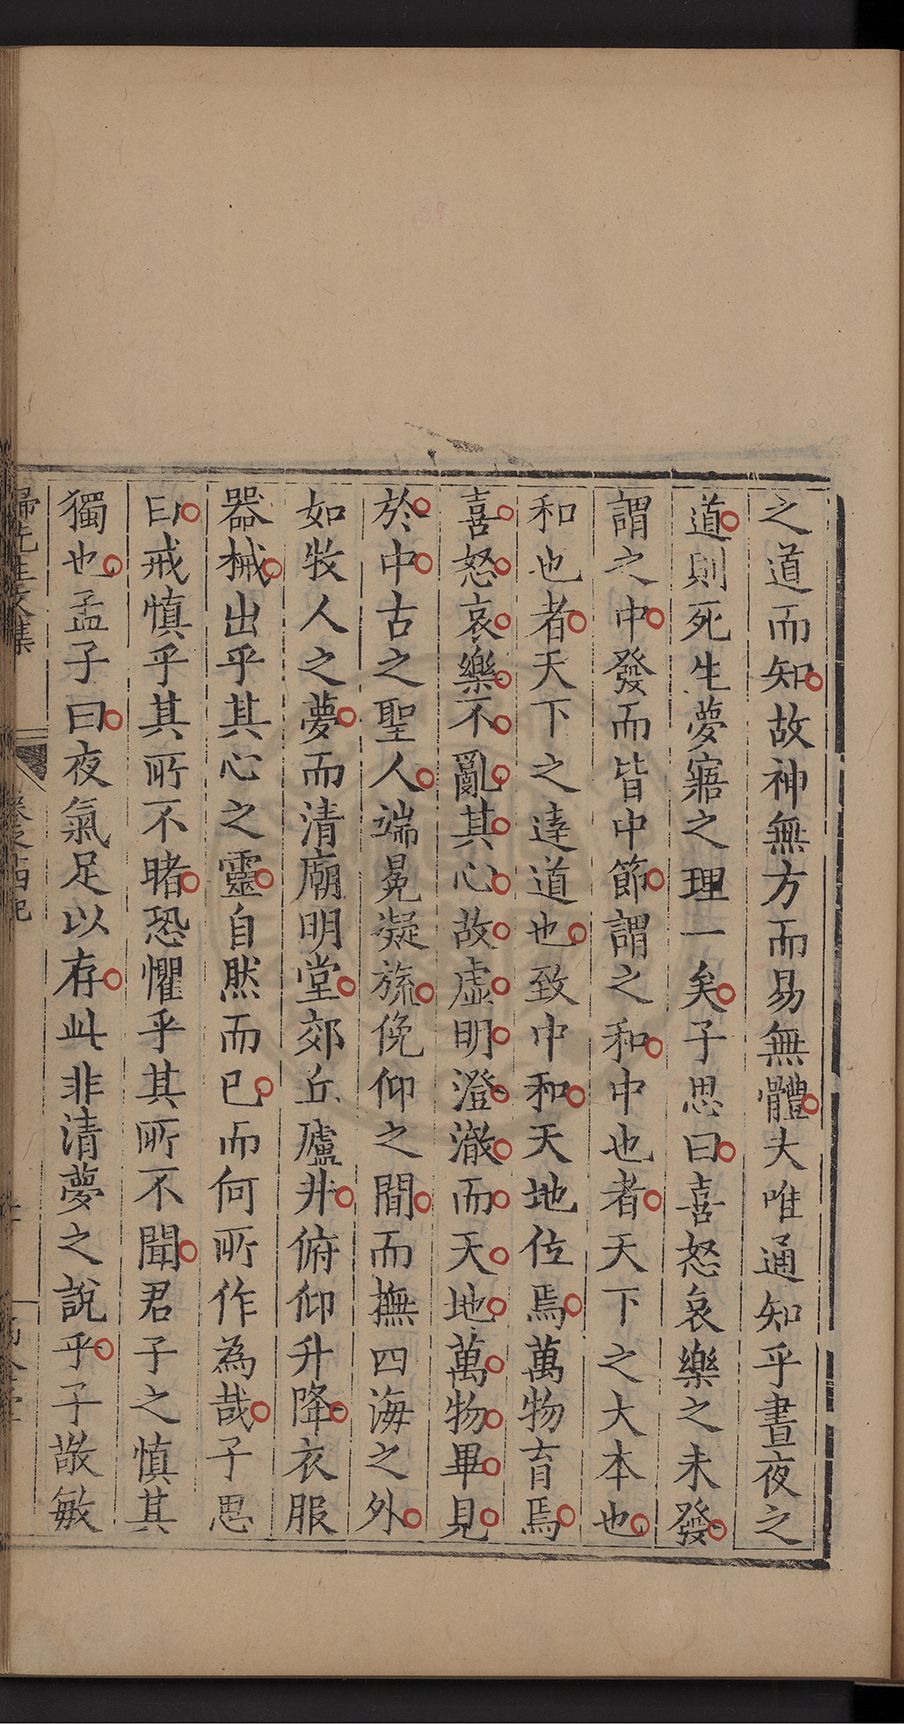 之道而知故神無方而易無體夫唯通知乎晝夜之
道則死生夢寤之理一矣子思曰喜怒哀樂之未發
謂之中發而皆中節謂之和中也者天下之大本也
和也者天下之達道也致中和天地位焉萬物育焉
喜怒哀樂不亂其心故虛明澄澈而天地萬物畢見
於中古之聖人端冕凝旒俛仰之間而撫四海之外
如牧人之夢而清廟明堂郊丘廬井俯仰升降衣服
器械出乎其心之靈自然而已而何所作為哉子思
曰戒慎乎其所不睹恐懼乎其所不聞君子之慎其
獨也孟子曰夜氣足以存此非清夢之說乎子敬敏
歸先生文集
卷之
記